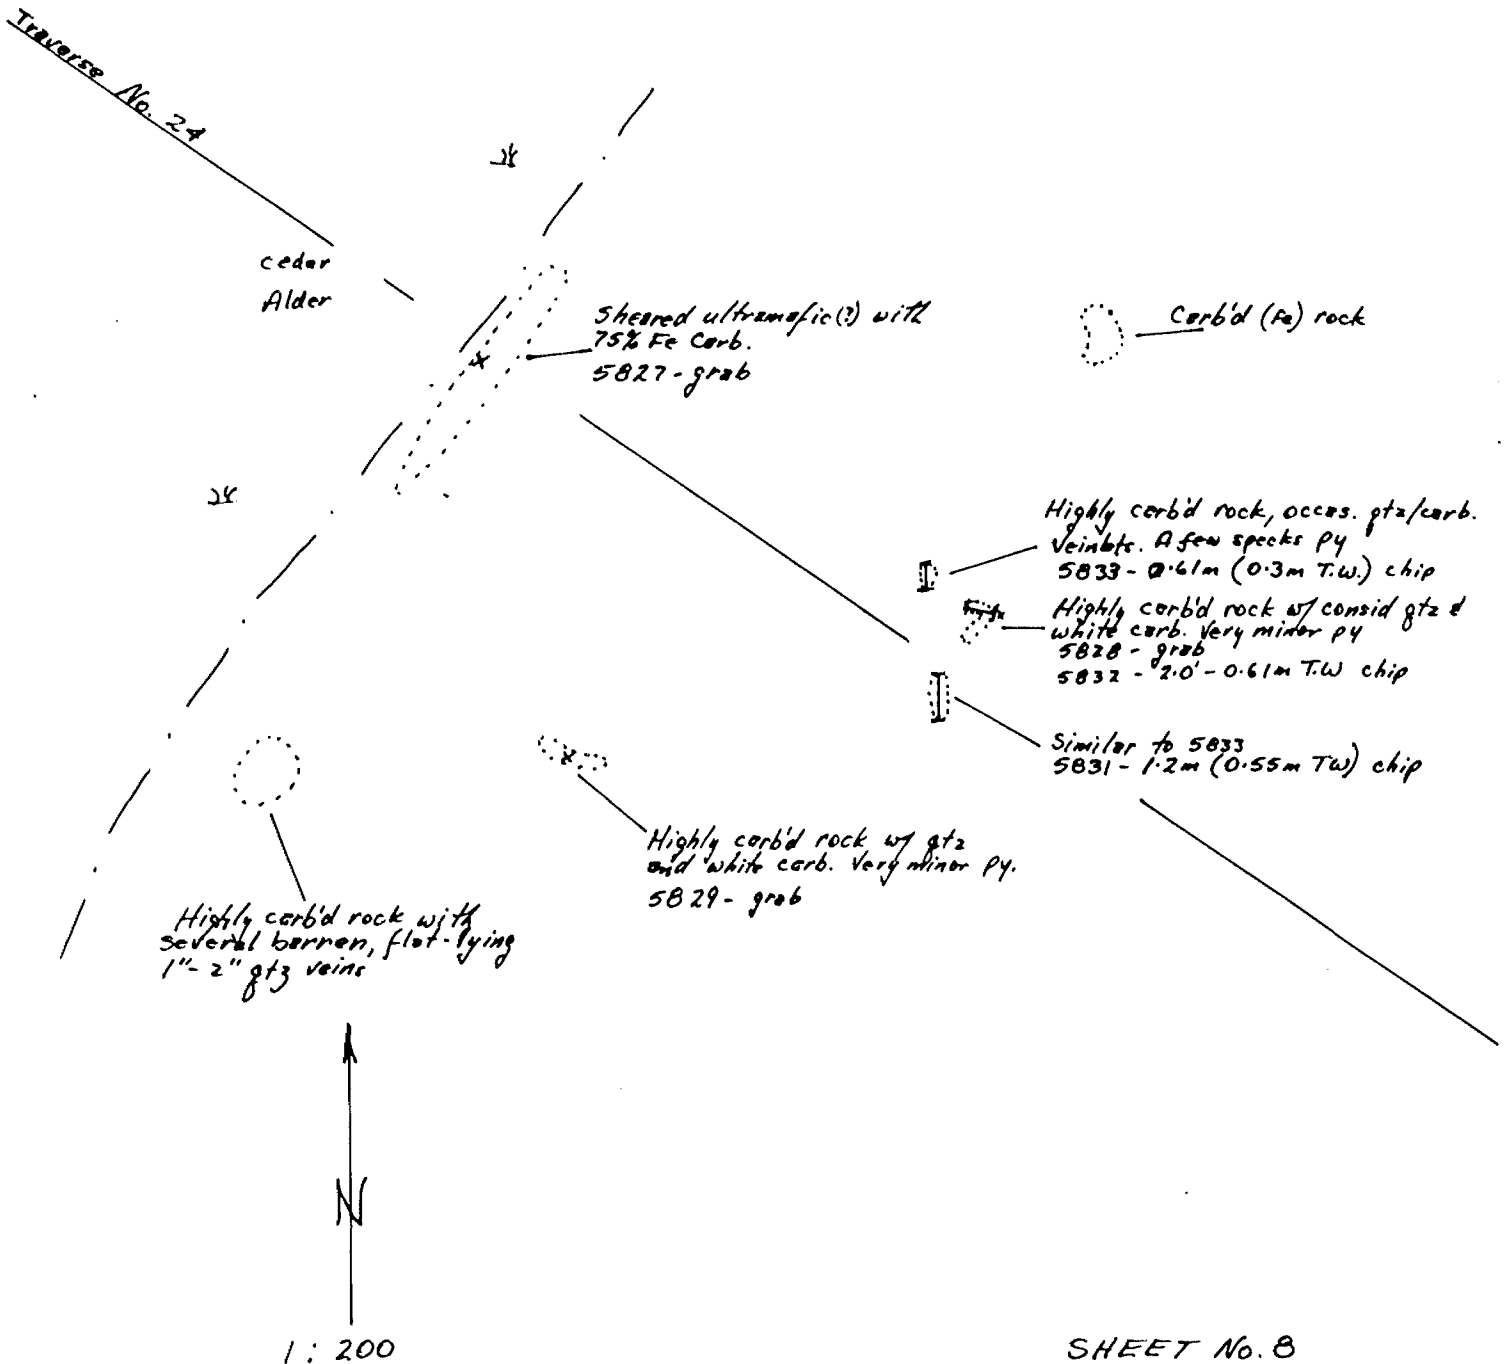 Traverse No. 24
cedar
Alder
Sheared ultramafic(?) with
75% Fe Carb.
5827 - grab
Carb'd (Fe) rock
Highly carb'd rock, occas. qtz/carb.
veinlets. A few specks Py
5833 - 0.61m (0.3m T.W.) chip
Highly carb'd rock w/ consid qtz &
white carb. Very minor py
5828 - grab
5832 - 2.0' - 0.61m T.W chip
Similar to 5833
5831 - 1.2m (0.55m TW) chip
Highly carb'd rock w/ qtz
and white carb. Very minor Py.
5829 - grab
Highly carb'd rock with
several barren, flat-lying
1"- 2" qtz veins
N
1 : 200
SHEET No. 8